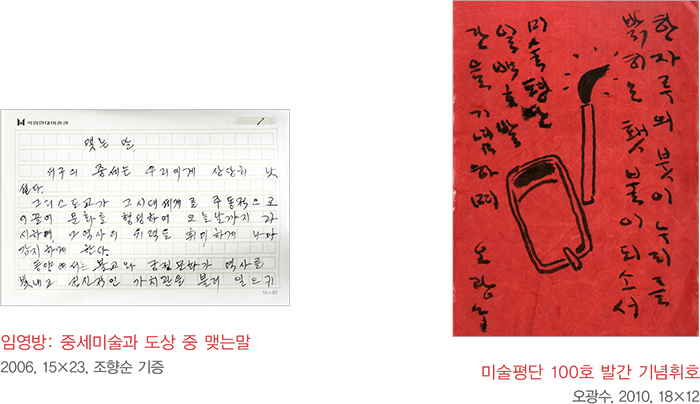 국립현대미술관
맺는 말
서구의 중세는 우리에게 상당히 낯
설다.
그리스도교가 그 시대 세계로 주동적으로
이끌어 문화를 형성하여 오늘날까지 과
시하여 그 역사의 위력을 휘미하게 나마
감지하게 한다.
동양에서는 불교와 궁정문화가 역사로
빛내고 정신적인 가치관을 불러 일으키
임영방: 중세미술과 도상 중 맺는말
2006, 15×23, 조향순 기증
한자루의 붓이 누리를
밝히는 횃불이 되소서
미술평단
일백호 발
간을 기념하며 오광수
미술평단 100호 발간 기념휘호
오광수, 2010, 18×12